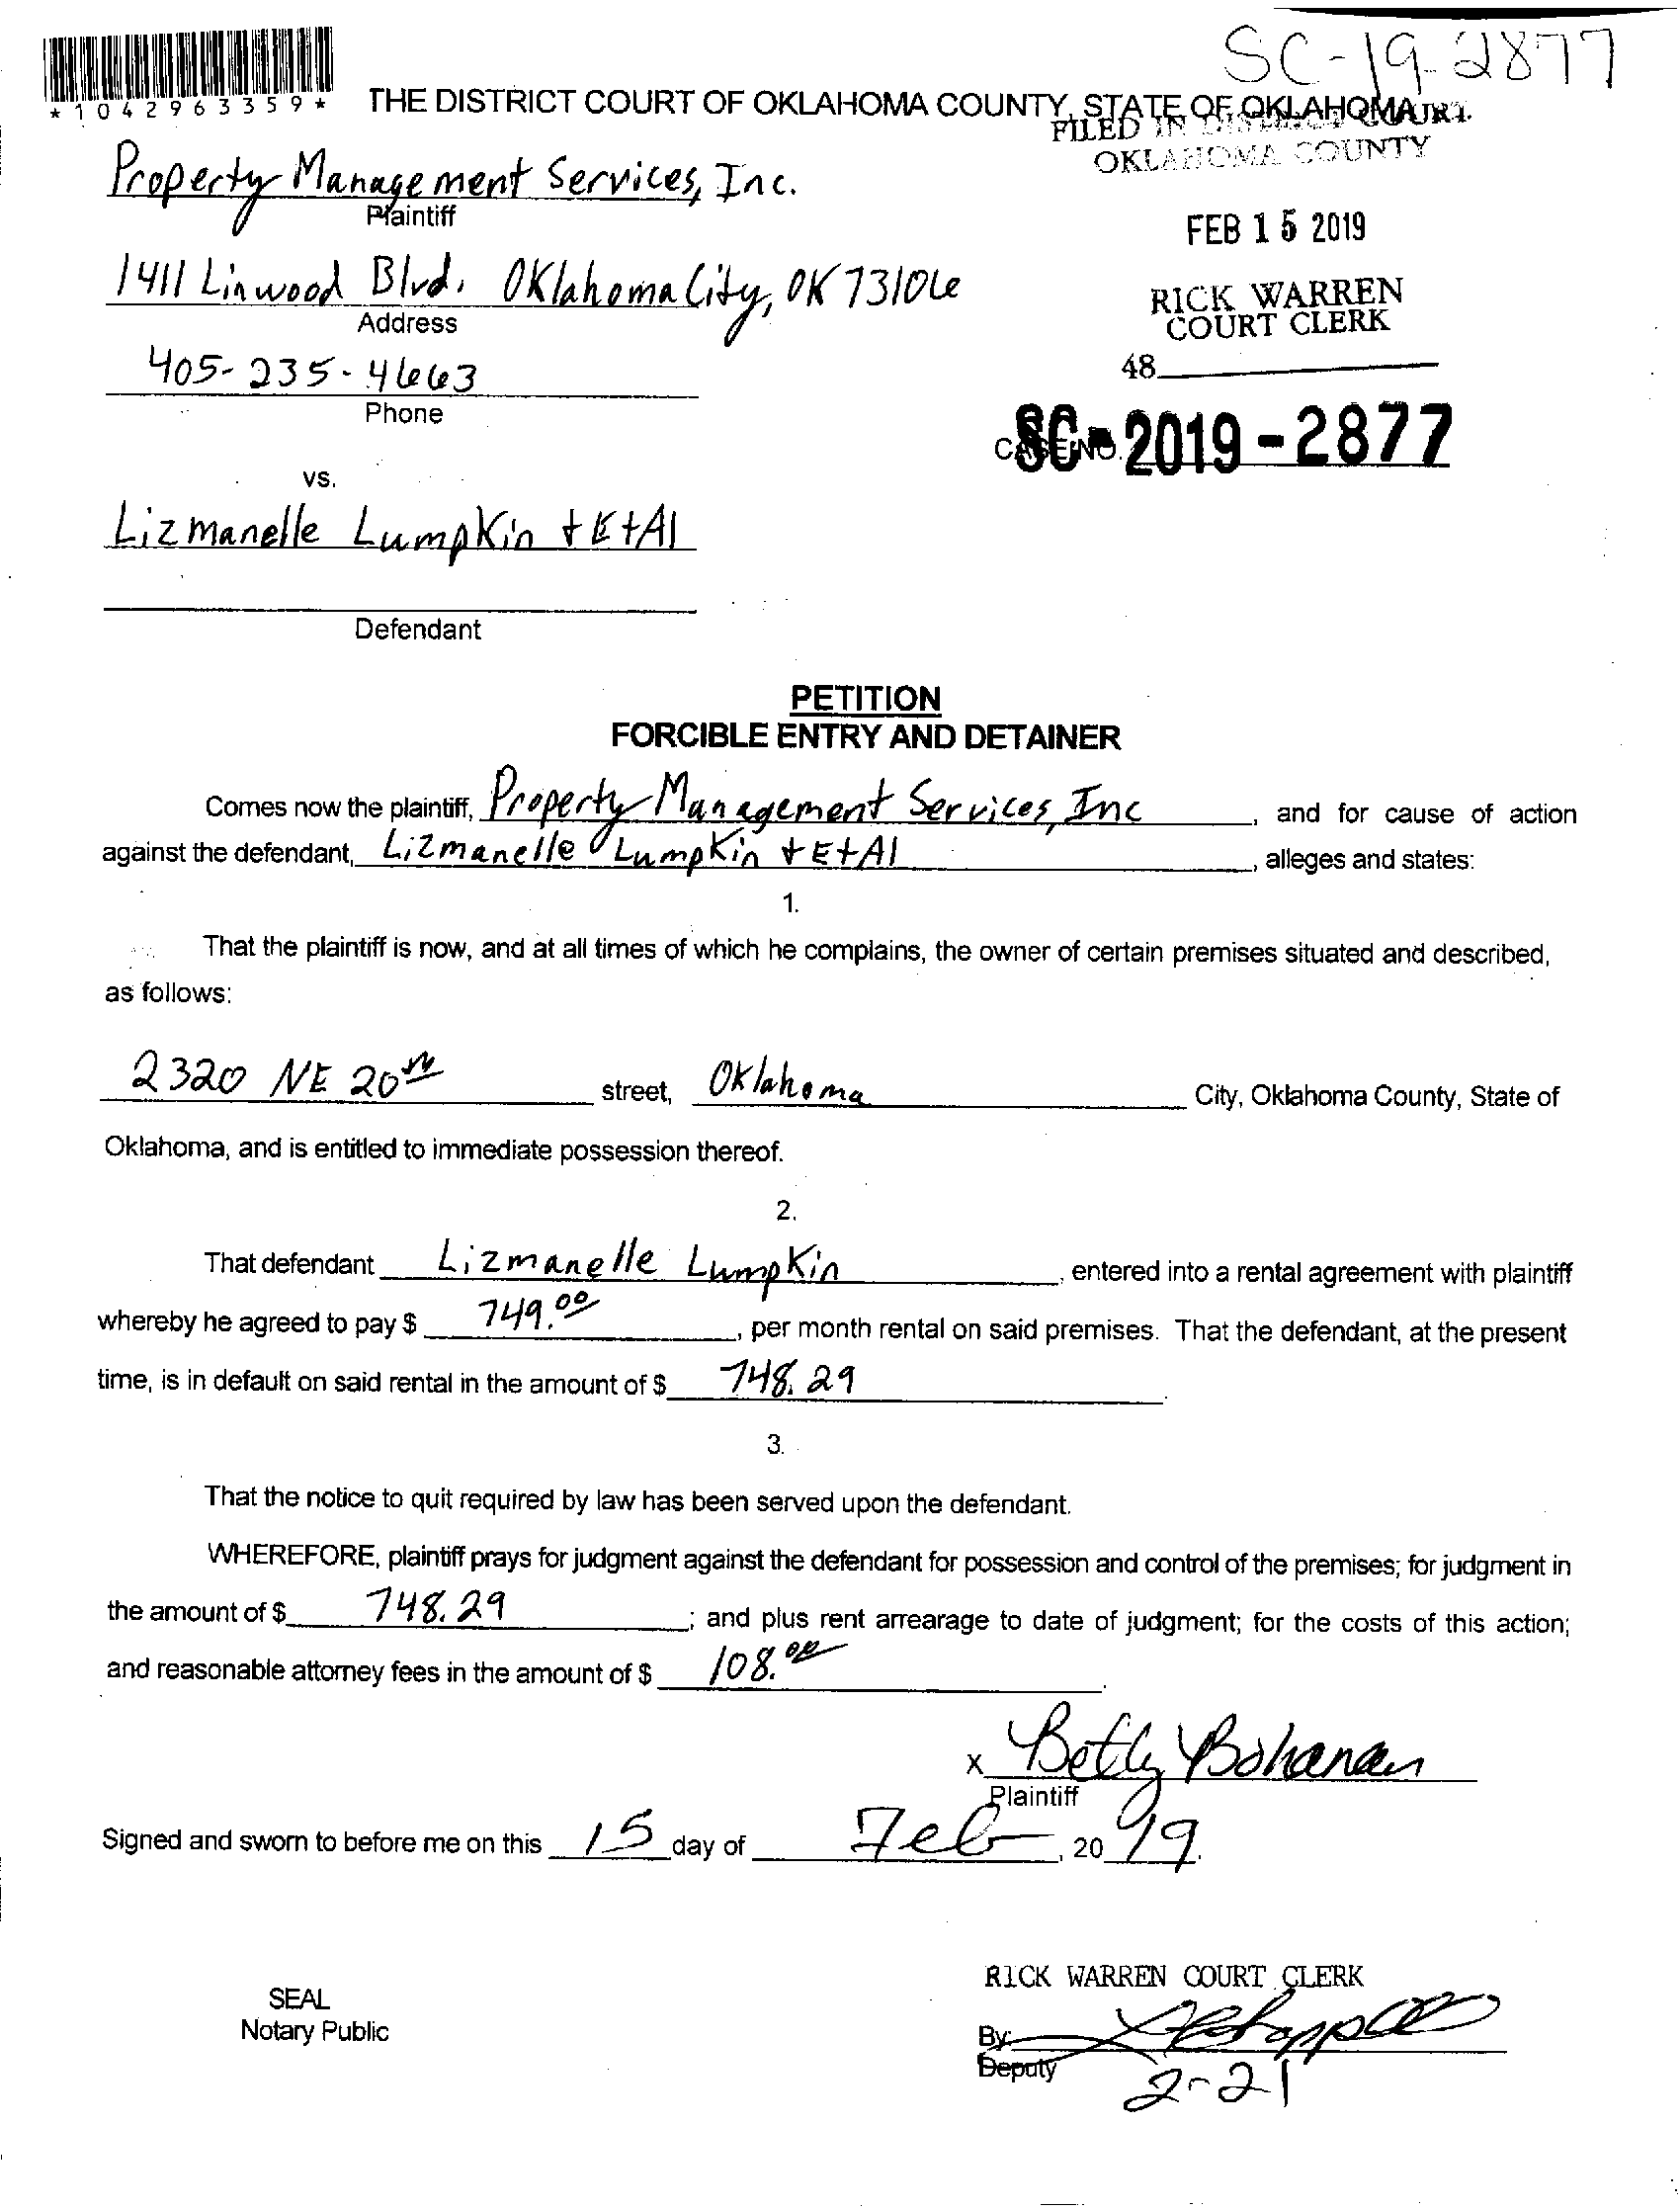 SC-19-2877
*1042963359*
THE DISTRICT COURT OF OKLAHOMA COUNTY, STATE OF OKLAHOMA
FILED IN DISTRICT COURT
OKLAHOMA COUNTY
Property Management Services, Inc.
Plaintiff
FEB 15 2019
1411 Linwood Blvd. Oklahoma City, OK 73106
Address
RICK WARREN
COURT CLERK
405-235-4663
Phone
48
CASE NO. SC-2019-2877
vs.
Lizmanelle Lumpkin + Et Al
Defendant
PETITION
FORCIBLE ENTRY AND DETAINER
Comes now the plaintiff, Property Management Services, Inc, and for cause of action
against the defendant, Lizmanelle Lumpkin + Et Al, alleges and states:
1.
That the plaintiff is now, and at all times of which he complains, the owner of certain premises situated and described,
as follows:
2320 NE 20th street, Oklahoma City, Oklahoma County, State of
Oklahoma, and is entitled to immediate possession thereof.
2.
That defendant Lizmanelle Lumpkin, entered into a rental agreement with plaintiff
whereby he agreed to pay $ 749.00, per month rental on said premises. That the defendant, at the present
time, is in default on said rental in the amount of $ 748.29.
3.
That the notice to quit required by law has been served upon the defendant.
WHEREFORE, plaintiff prays for judgment against the defendant for possession and control of the premises; for judgment in
the amount of $ 748.29; and plus rent arrearage to date of judgment; for the costs of this action;
and reasonable attorney fees in the amount of $ 108.00.
X Betty Bohanan
Plaintiff
Signed and sworn to before me on this 15 day of Feb, 2019.
RICK WARREN COURT CLERK
SEAL
Notary Public
By:
Deputy
2-21